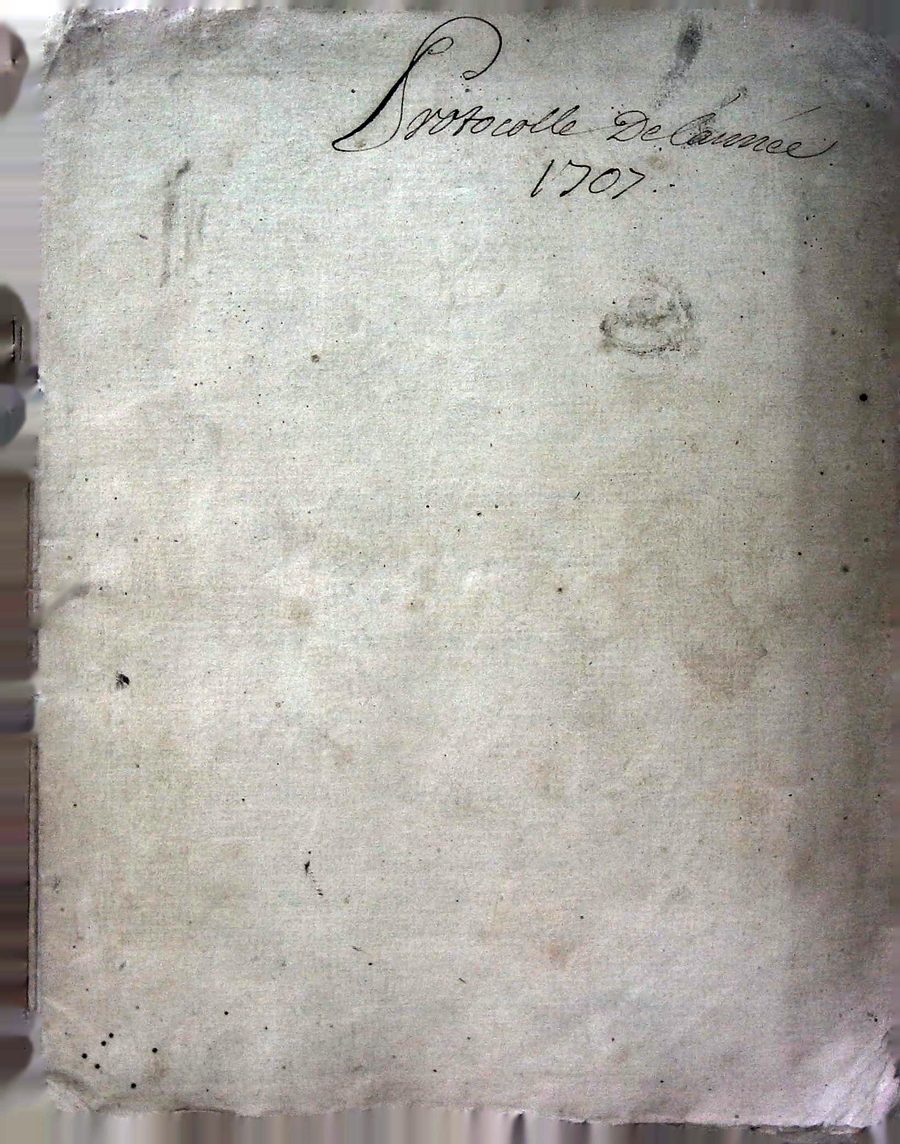 Protocolle De Lannee
1707.